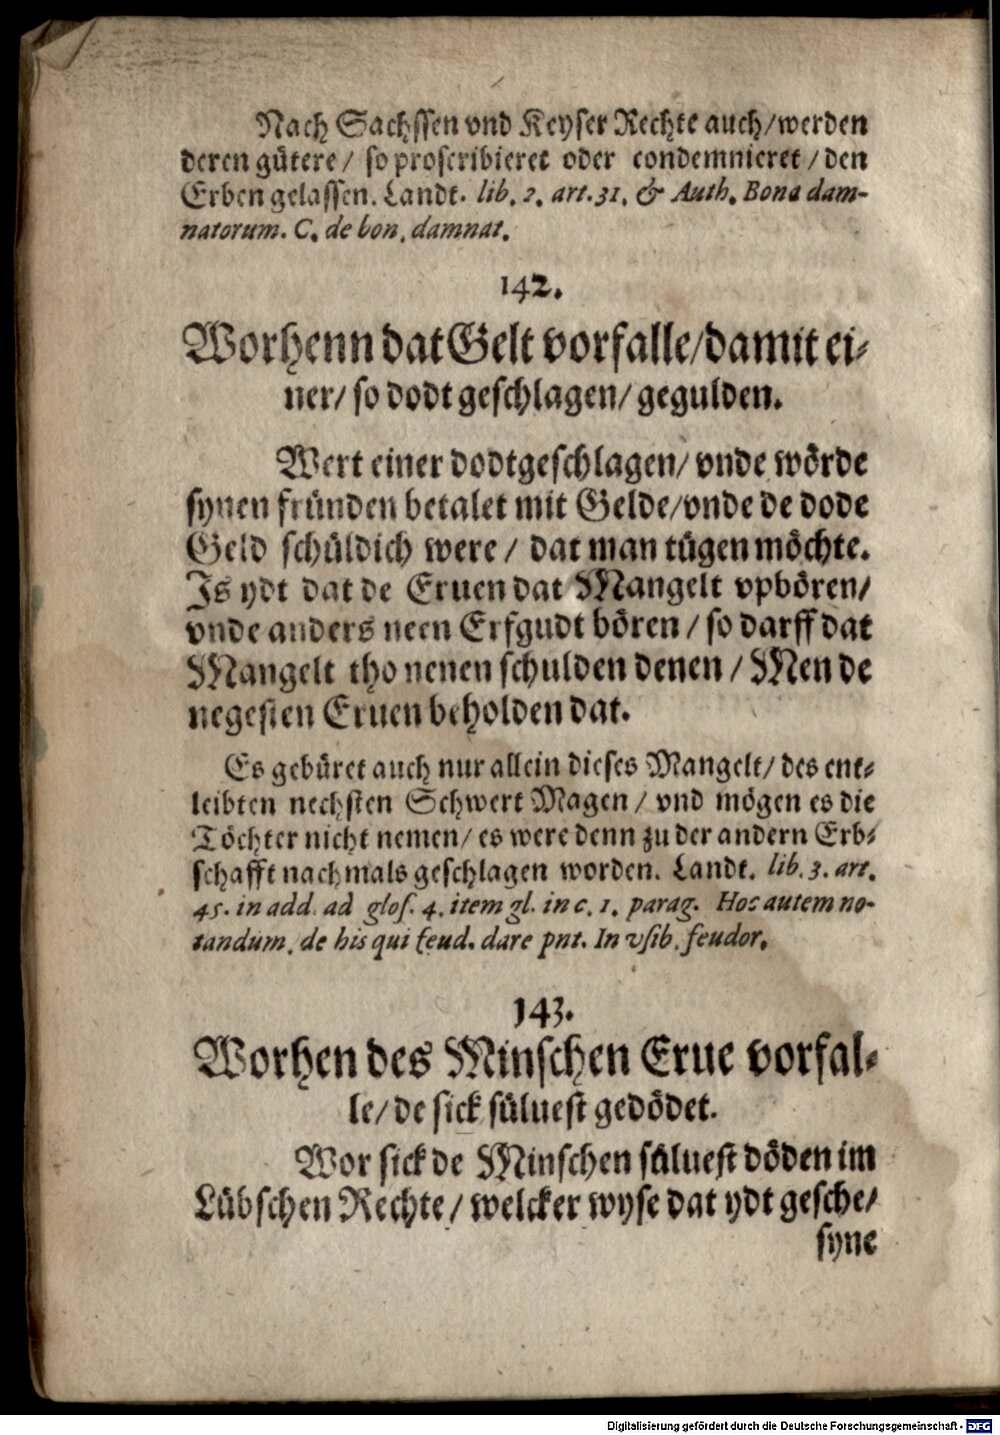 Nach Sachssen vnd Keyser Rechte auch/werden
deren gütere/ so proscribieret oder condemnieret/den
Erben gelassen. Landt. lib. 2. art. 31. & Auth. Bona dam-
natorum. C. de bon. damnat.
142.
Worhenn dat Gelt vorfalle/damit ei-
ner/ so dodt geschlagen/ gegulden.
Wert einer dodtgeschlagen/ vnde wörde
synen fründen betalet mit Gelde/vnde de dode
Geld schüldich were/ dat man tügen möchte.
Is ydt dat de Eruen dat Mangelt vpbören/
vnde anders neen Erfgudt bören/ so darff dat
Mangelt tho nenen schulden denen/ Men de
negesten Eruen beholden dat.
Es gebüret auch nur allein dieses Mangelt/ des ent-
leibten nechsten Schwert Magen/ vnd mögen es die
Töchter nicht nemen/ es were denn zu der andern Erb-
schafft nachmals geschlagen worden. Landt. lib. 3. art.
45. in add. ad glos. 4. item gl. in c. 1. parag. Hoc autem no-
tandum. de his qui feud. dare pnt. In vsib. feudor.
143.
Worhen des Minschen Erue vorfal-
le/ de sick süluest gedödet.
Wor sick de Minschen süluest döden im
Lübschen Rechte/ welcker wyse dat ydt gesche/
syne
Digitalisierung gefördert durch die Deutsche Forschungsgemeinschaft - DFG